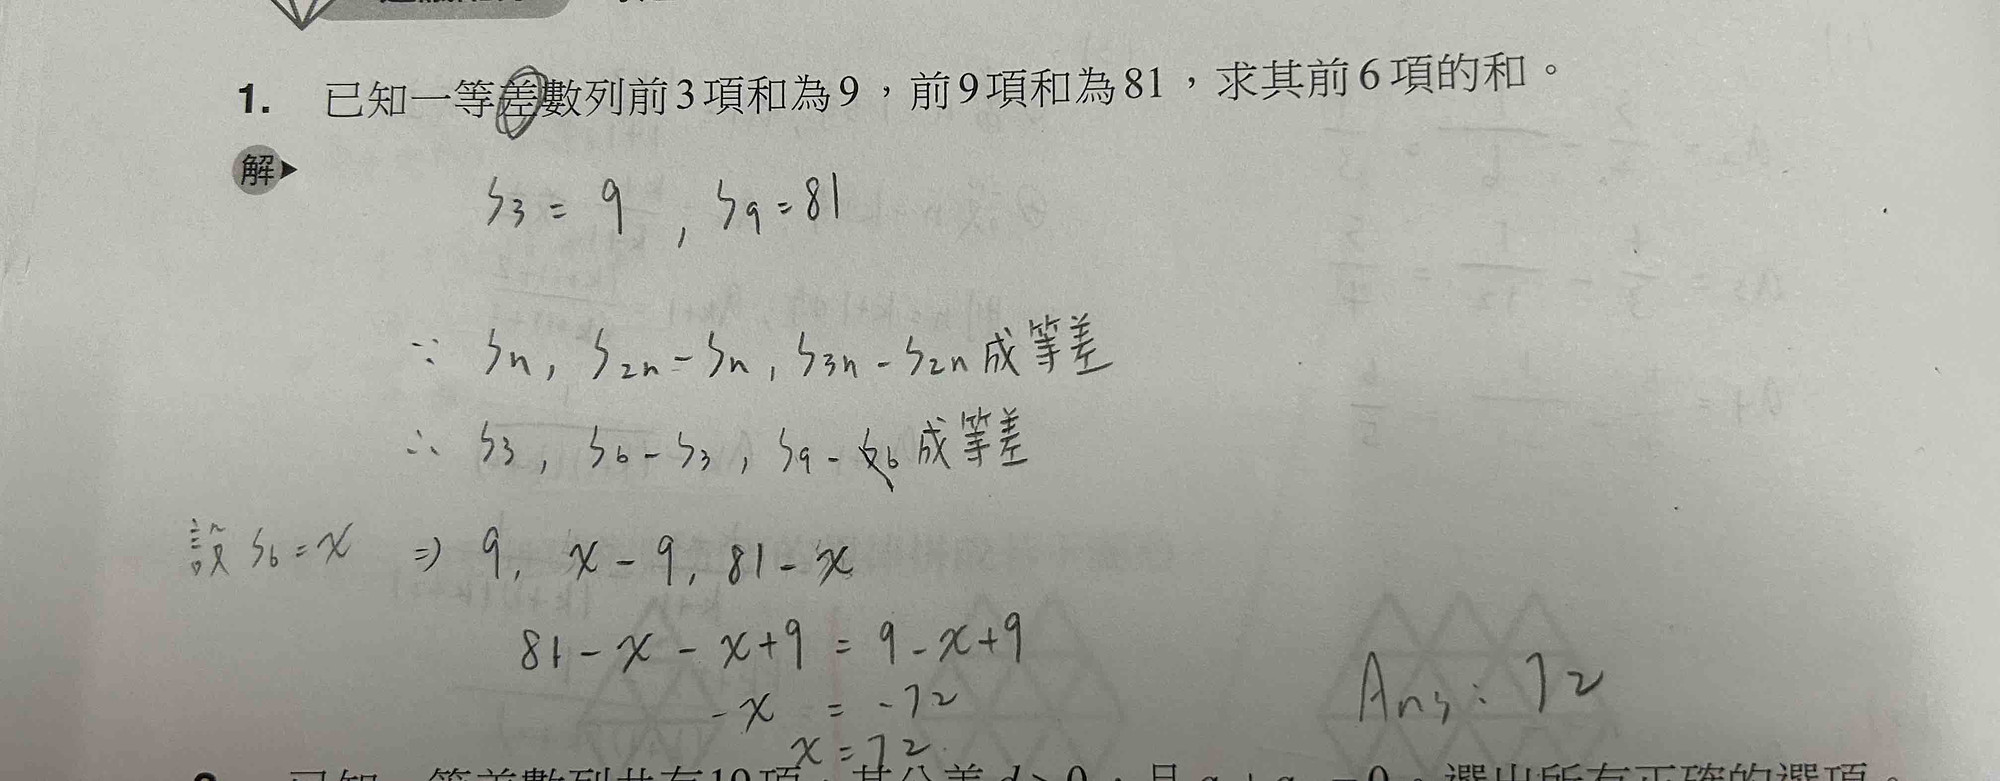 1. 已知一等差數列前3項和為9，前9項和為81，求其前6項的和。
解
S3 = 9 , S9 = 81
∵ Sn, S2n - Sn, S3n - S2n 成等差
∴ S3, S6 - S3, S9 - S6 成等差
設 S6 = x ⇒ 9, x - 9, 81 - x
81 - x - x + 9 = 9 - x + 9
- x = - 72
x = 72
Ans: 72